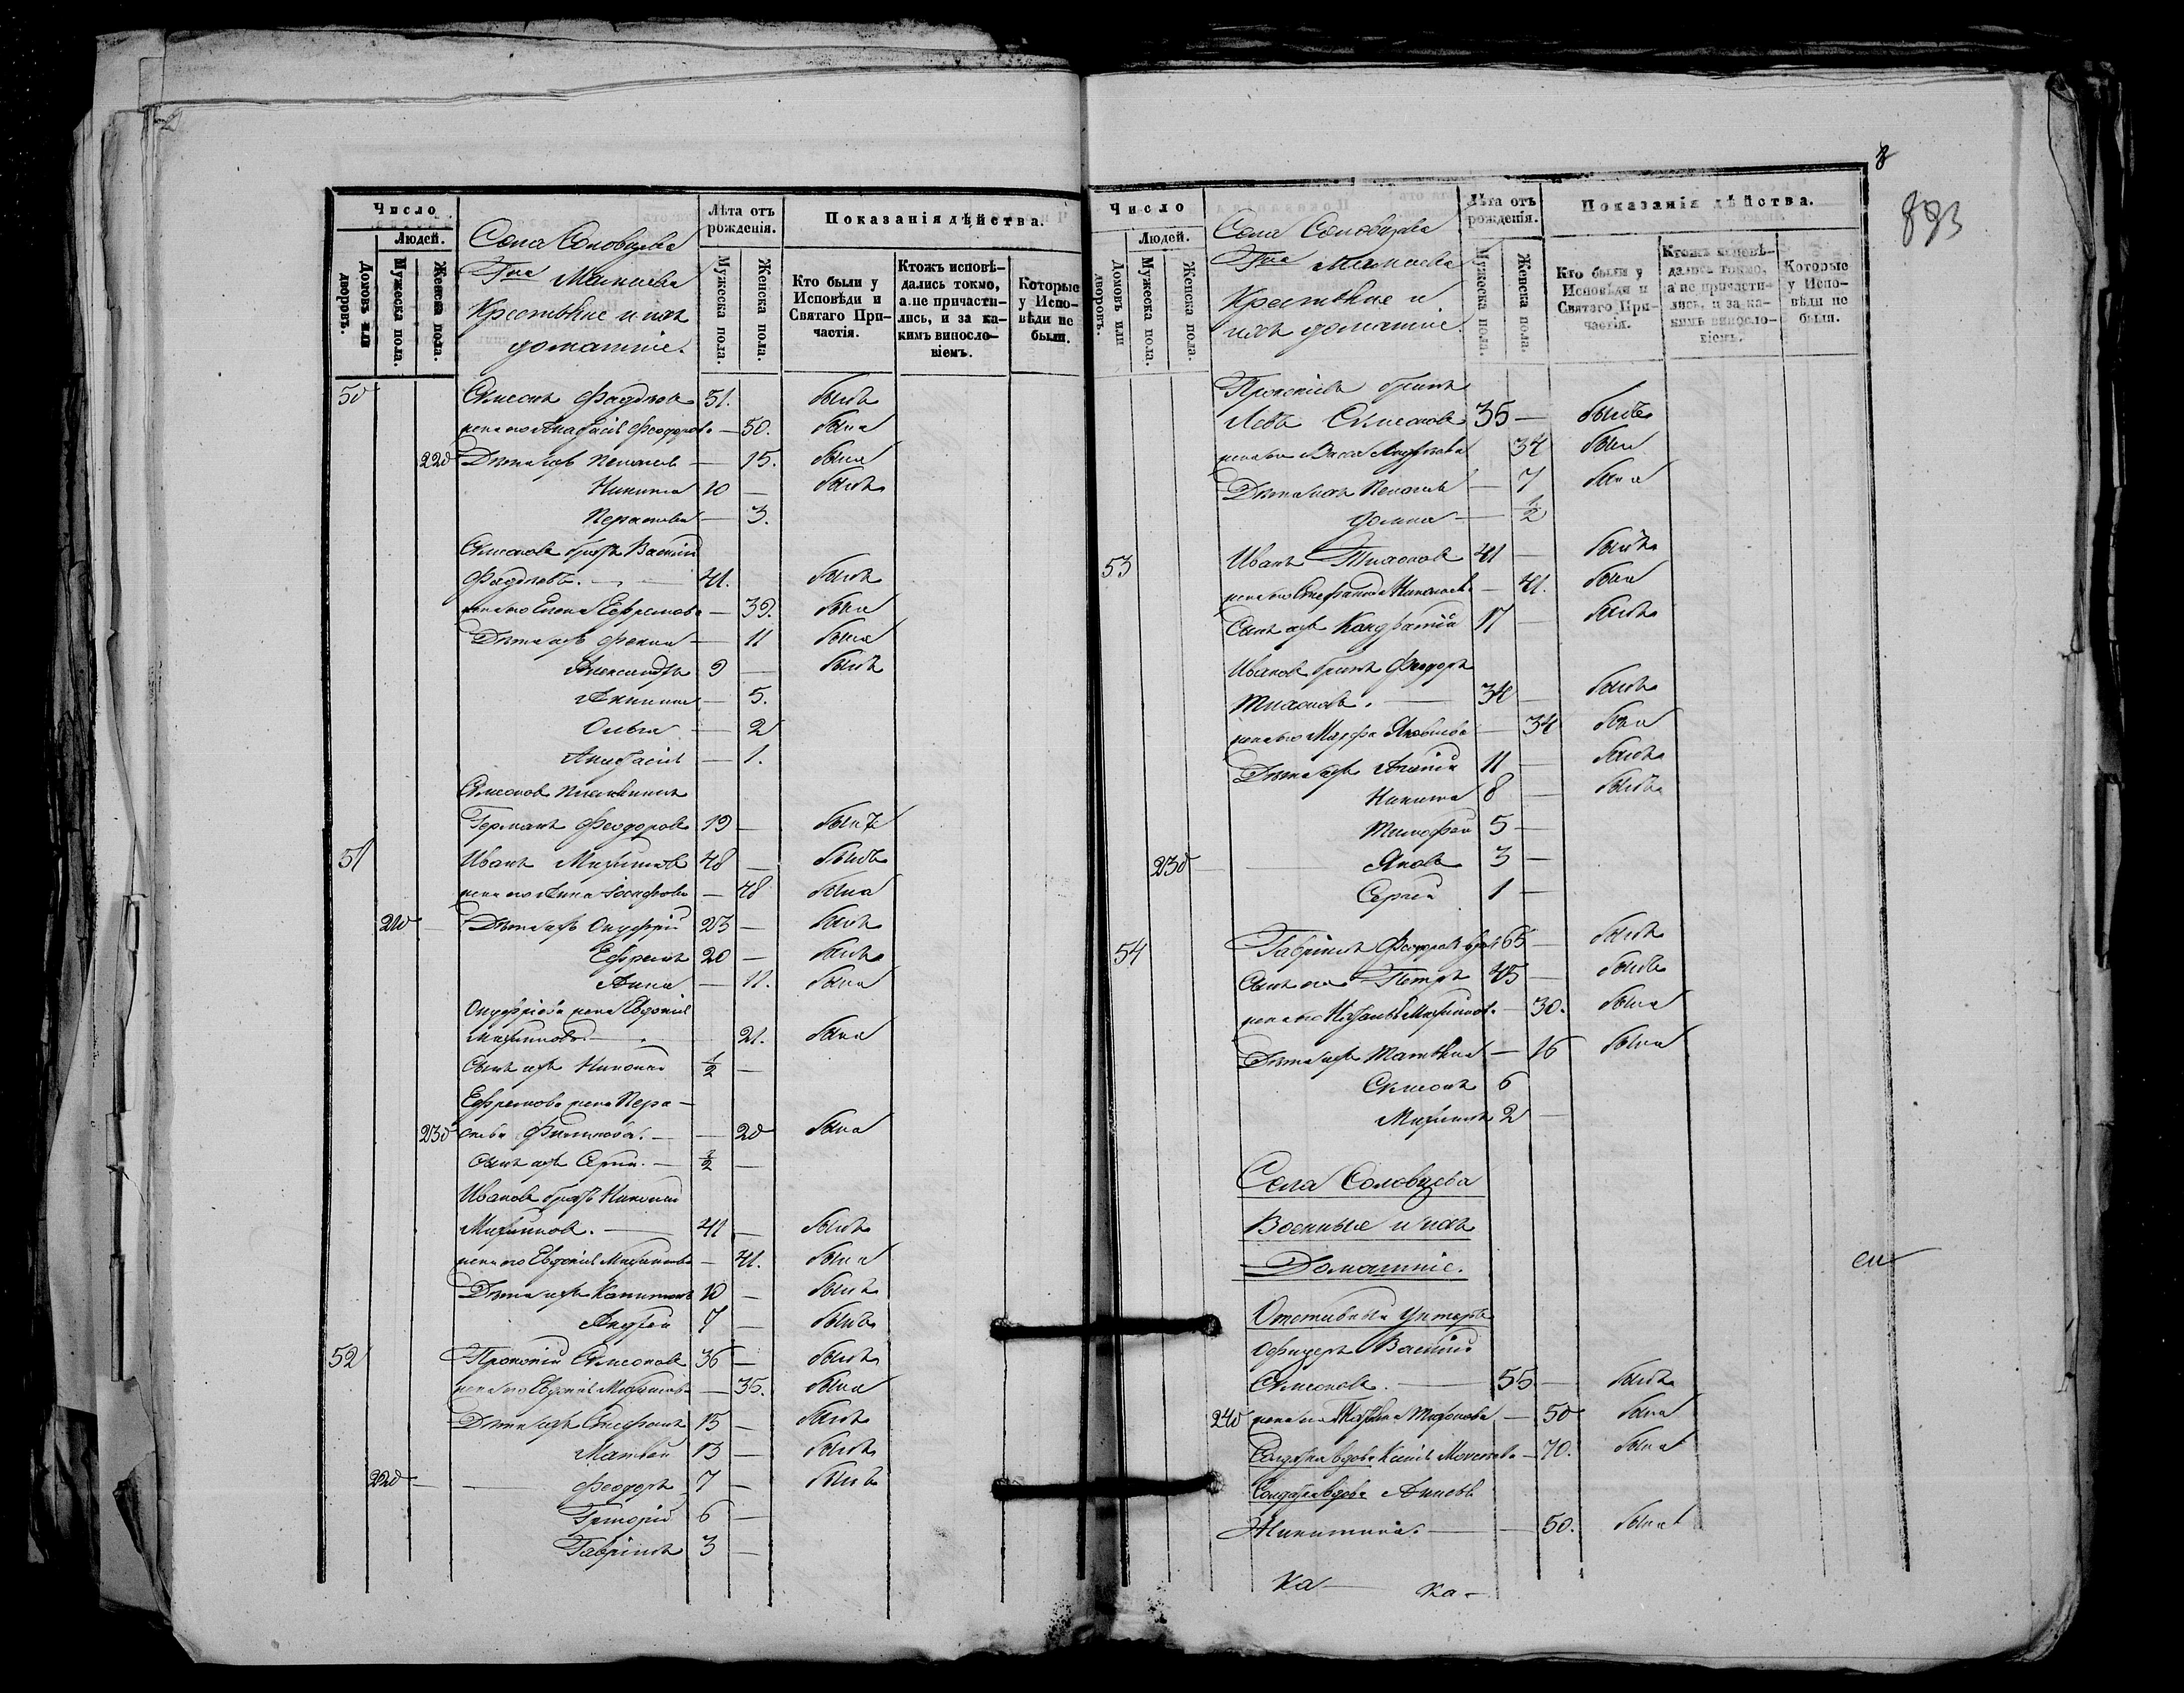 Число
Людей.
Домовъ или дворовъ.
Мужеска пола.
Женска пола.
Села Соловцева
Крестьяне и ихъ
домашніе.
Лѣта отъ рожденія.
Мужеска пола.
Женска пола.
Показанія дѣйства.
Кто были у Исповѣди и Святаго Причастія.
Ктожъ исповѣдались токмо, а не причастились, и за какимъ винословіемъ.
Которые у Исповѣди не были.
50 Симеонъ Фадѣевъ 51. былъ
жена его Анастасія Феодорова — 50. была
220 Дѣти ихъ Пелагея — 15. была
Никита 10 — былъ
Параскева — 3.
Симеоновъ братъ Василій
Фадѣевъ. — 41. былъ
жена его Елена Ефремова — 39. была
Дѣти ихъ Фекла — 11 была
Александръ 9 — былъ
Акилина — 5.
Ольга — 2
Анастасія — 1.
Симеоновъ племянникъ
Германъ Феодоровъ 19 — былъ
51 Иванъ Михайловъ 48 — былъ
жена его Анна Іосифова — 48 была
210 Дѣти ихъ Онуфрій 23 — былъ
Ефремъ 20 — былъ
Анна — 11. была
Онуфріева жена Евдокія
— 21. была
Сынъ ихъ Николай 1/2 —
Ефремова жена Пара-
230 скева Филипова. — 20 была
Сынъ ихъ Сергій. — 1/2 —
Ивановъ братъ Николай
Михайловъ. — 41 — былъ
жена его Евдокія — 41. была
Дѣти ихъ Капитонъ 10 — былъ
Андрей 7 — былъ
52 Прокопій Симеоновъ 36 — былъ
жена его Евдокія — 35. была
Дѣти ихъ Стефанъ 15 — былъ
Матвей 13 — былъ
220 — Феодоръ 7 — былъ
Григорій 6 —
Гавріилъ 3 —
893
Число
Людей.
Домовъ или дворовъ.
Мужеска пола.
Женска пола.
Села Соловцева
Крестьяне и
ихъ домашніе.
Лѣта отъ рожденія.
Мужеска пола.
Женска пола.
Показанія дѣйства.
Кто были у Исповѣди и Святаго Причастія.
Ктожъ исповѣдались токмо, а не причастились, и за какимъ винословіемъ.
Которые у Исповѣди не были.
Прокопіевъ братъ
Левъ Симеоновъ 35 — былъ
жена его Васса 34 была
Дѣти ихъ Пелагея — 7 была
Домна — 1/2
53 Иванъ Тихоновъ 41 — былъ
жена его Стефанида Николаева — 41. была
Сынъ ихъ Кондратій 17 — былъ
Ивановъ братъ Феодоръ
Тихоновъ. — 34 — былъ
жена его Марфа Яковлева — 34 была
Дѣти ихъ 11 — былъ
Никита 8 — былъ
Тимофей 5 —
230 — Яковъ 3 —
Сергій 1 —
54 Гавріилъ Феодоровъ вдовъ 65 — былъ
Сынъ его Петръ 45 — былъ
жена его — 30. была
Дѣти ихъ — 16 была
Симеонъ 6
Михаилъ 2 —
Села Соловцева
Военные и ихъ
Домашніе.
Отставный Унтеръ
Офицеръ Василій
Симеоновъ. — 55 — былъ
240 жена его — 50 была
Солдатка вдова Ксенія — 70. была
Солдатка вдова
Никитина. — 50. была